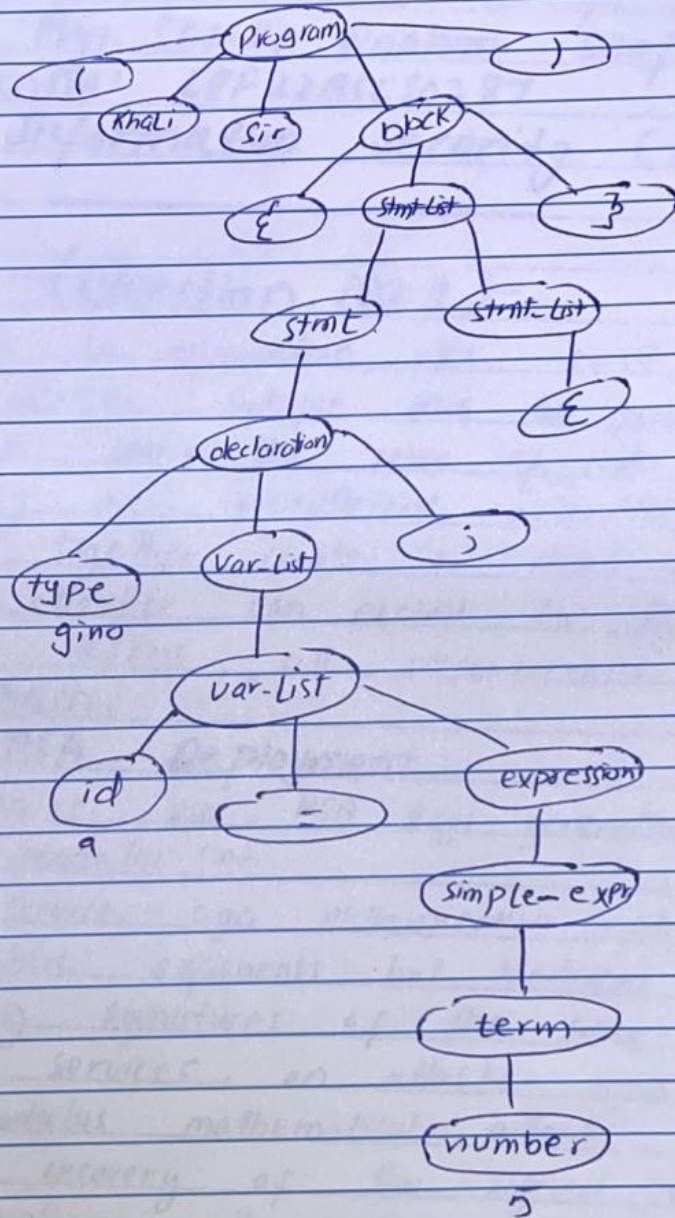 Program
( )
Khali Sir block
{ Stmt-List }
Stmt Stmt-List
ε
declaration
type Var-List ;
gino
Var-List
id = expression
a
Simple-expr
term
number
5